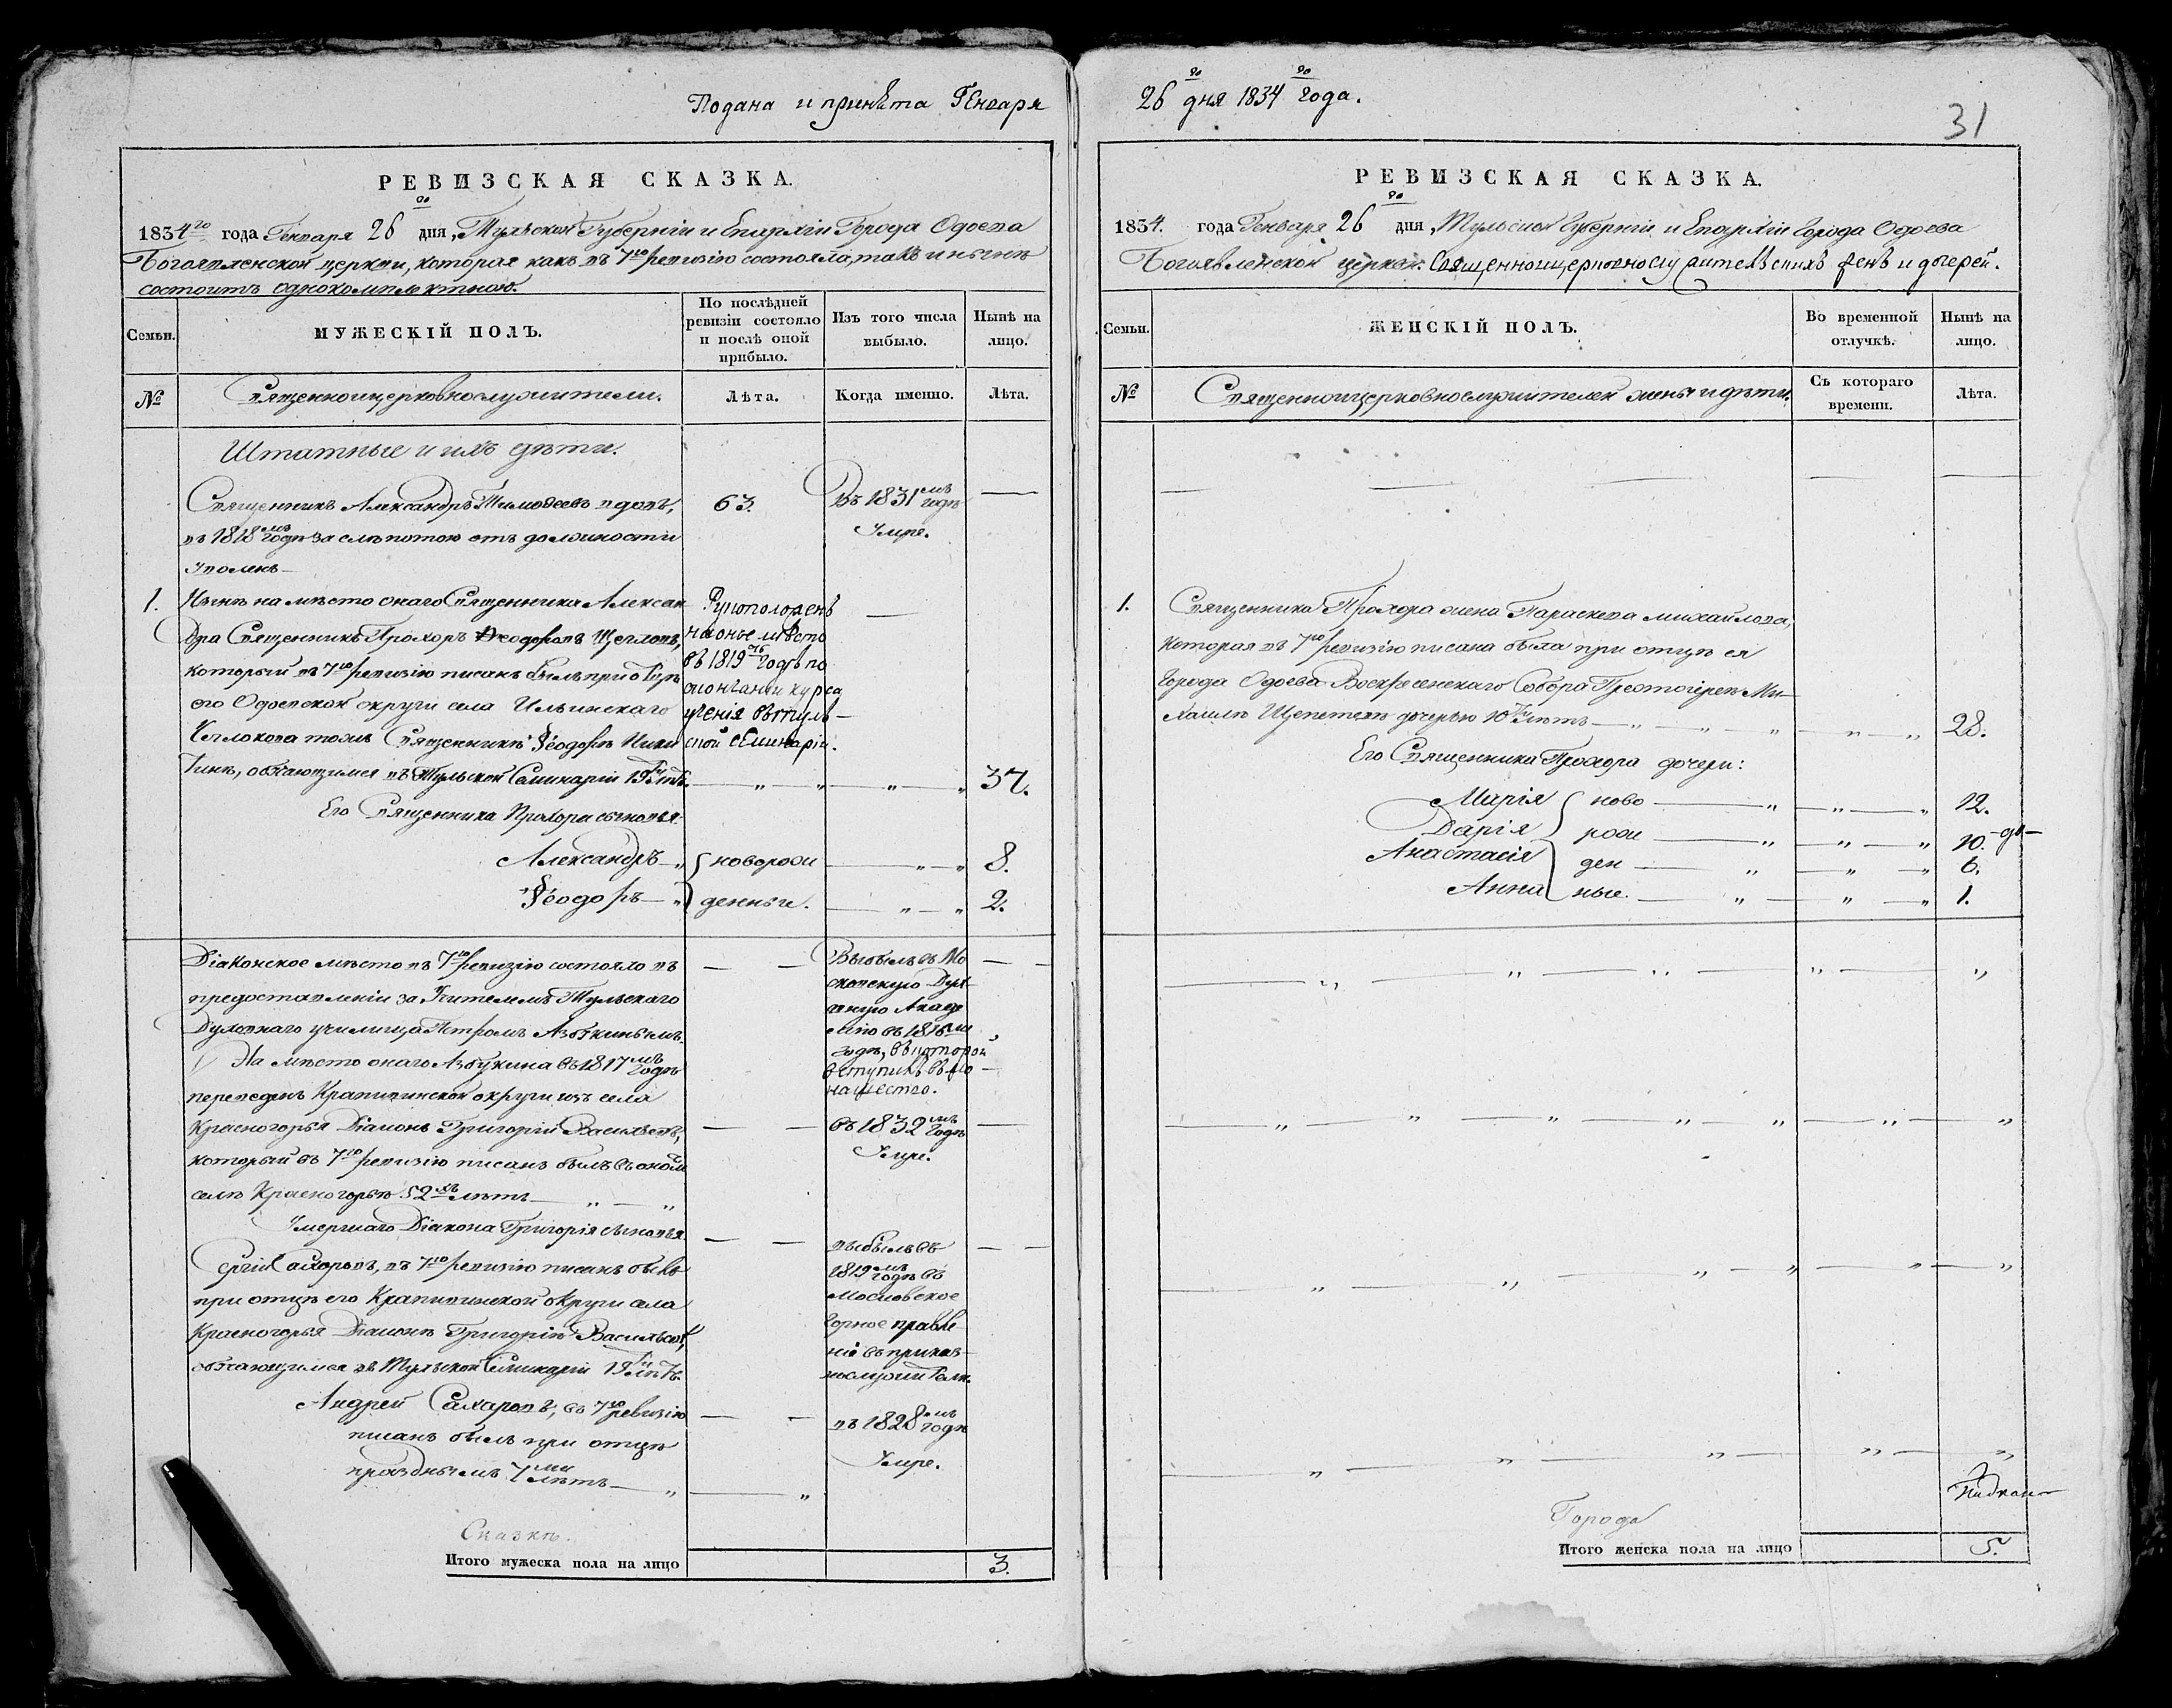 Подана и принѣта Генваря
26го дня 1834го года.
31
РЕВИЗСКАЯ СКАЗКА.
1834го года Генваря 26го дня, Тульской Губерніи и Епархіи Города Одоева
Богоявленской церкви, которая какъ въ 7ю ревизію состояла, такъ и нынѣ
состоитъ однокомплектною.
Семьи.
МУЖЕСКІЙ ПОЛЪ.
По послѣдней
ревизіи состояло
и послѣ оной
прибыло.
Изъ того числа
выбыло.
Нынѣ на
лицо.
№
Священноицерковнослужители.
Лѣта.
Когда именно.
Лѣта.
Штатные и ихъ дѣти.
Священникъ Александръ Тимоѳеевъ вдовъ,
63.
Въ 1831мъ годѣ
въ 1818мъ годѣ за слѣпотою отъ должности
Умре.
уволенъ —
1. Нынѣ на мѣсто онаго Священника Алексан
Рукоположенъ
дра Священникъ Прохоръ Ѳеодоровъ Щегловъ,
на оное мѣсто
который въ 7ю ревизію писанъ былъ при отцѣ
въ 1819мъ годѣ по
его Одоевской округи села Ильинскаго
окончаніи курса
тожъ Священникѣ Ѳеодорѣ Ники
ученія въ Туль-
ской Семинаріи.
тинѣ, обучающимся въ Тульской Семинаріи 19ти лѣтъ.
37.
Его Священника Прохора сыновья:
Александръ — новорож 8.
Ѳеодоръ — денные. 2.
Діаконское мѣсто въ 7ю ревизію состояло въ
предоставленіи за Учителемъ Тульскаго
Духовнаго училища Петромъ Азбукинымъ.
Выбылъ въ Мо
сковскую Дух
овную Акаде
мію въ 1818мъ
годѣ, въ которой
вступилъ въ мо
нашество.
На мѣсто онаго Азбукина въ 1817мъ годѣ
переведенъ Крапивинской округи изъ села
Красногорья Діаконъ Григорій Васильевъ,
въ 1832мъ годѣ
который въ 7ю ревизію писанъ былъ въ ономъ
Умре.
селѣ Красногорьѣ 52хъ лѣтъ
Умершаго Діакона Григорія сыновья
Сергій Сахаровъ, въ 7ю ревизію писанъ былъ
при отцѣ его Крапивинской округи села
Красногорья Діаконѣ Григоріѣ Васильевѣ,
обучающимся въ Тульской Семинаріи 19ти лѣтъ.
выбылъ въ
1819мъ годѣ въ
Московское
Горное правле
ніе въ приказ-
нослужители.
Андрей Сахаровъ, въ 7ю ревизію
писанъ былъ при отцѣ
празднымъ 7ми лѣтъ
въ 1828мъ годѣ
Умре.
Сказкѣ.
Итого мужеска пола на лицо 3.
РЕВИЗСКАЯ СКАЗКА.
1834. года Генваря 26го дня, Тульской Губерніи и Епархіи Города Одоева
Богоявленской церкви. Священноицерковнослужительскихъ женъ и дочерей.
Семьи.
ЖЕНСКІЙ ПОЛЪ.
Во временной
отлучкѣ.
Нынѣ на
лицо.
№
Священноицерковнослужителей жены и дѣти.
Съ котораго
времени.
Лѣта.
1. Священника Прохора жена Параскева Михайлова,
которая въ 7ю ревизію писана была при отцѣ ея
Города Одоева Воскресенскаго Собора Протоіереѣ Ми-
хаилѣ Щепетевѣ дочерью 10ти лѣтъ 28.
Его Священника Прохора дочери:
Марія ново 12.
Дарія рож 10.
Анастасія ден 6.
Анна ные. 1.
Города
Итого женска пола на лицо 5.